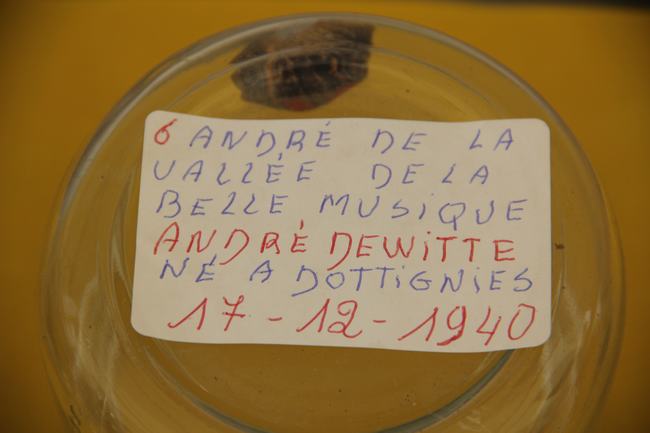 6 ANDRÉ DE LA
VALLÉE DE LA
BELLE MUSiQUE
ANDRÉ DEWiTTE
NÉ A DOTTiGNiES
17-12-1940